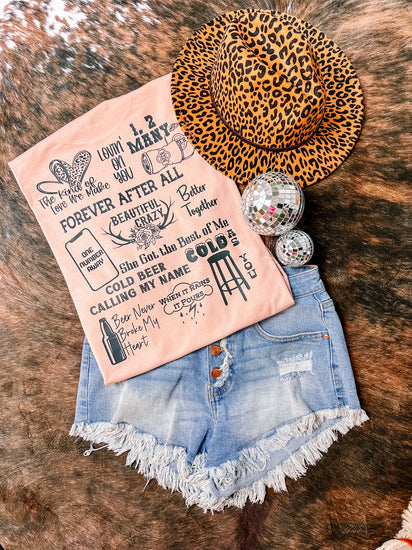 The Kind of
Love We Make
Lovin'
on
You
1, 2
MANY
FOREVER AFTER ALL
ONE
NUMBER
AWAY
BEAUTIFUL
CRAZY
Better
Together
She Got the Best of Me
COLD BEER
CALLING MY NAME
COLD AS
YOU
Beer Never
Broke My
Heart
WHEN IT RAINS
IT POURS